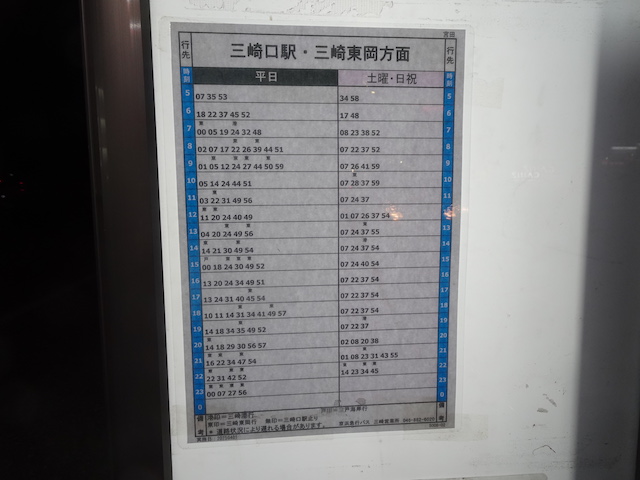 宮田
行先 三崎口駅・三崎東岡方面 行先
時刻 平日 土曜・日祝 時刻
5 07 35 53 34 58 5
6 18 22 37 45 52 17 48 6
7 00 05 19 24 32 48 08 23 38 52 7
8 02 07 17 22 26 39 44 51 07 22 37 52 8
9 01 05 12 24 27 44 50 59 07 26 41 59 9
10 05 14 24 44 51 07 28 37 59 10
11 03 22 31 49 56 07 24 37 11
12 11 20 24 40 49 01 07 26 37 54 12
13 04 20 24 49 56 07 24 37 55 13
14 14 21 30 49 54 07 24 37 54 14
15 00 18 24 30 49 52 07 24 40 54 15
16 13 20 24 34 49 51 07 22 37 54 16
17 13 24 31 40 45 54 07 22 37 54 17
18 10 11 14 31 34 41 49 57 07 22 37 54 18
19 14 18 34 35 49 52 07 22 37 19
20 14 18 29 30 56 57 02 08 20 38 20
21 16 22 34 47 54 01 08 23 31 43 55 21
22 22 31 42 52 14 23 34 45 22
23 00 07 27 56 23
0 0
備考 港印=三崎港行 備考
東印=三崎東岡行 無印=三崎口駅止り 京浜急行バス 三崎営業所
* 道路状況により遅れる場合があります。